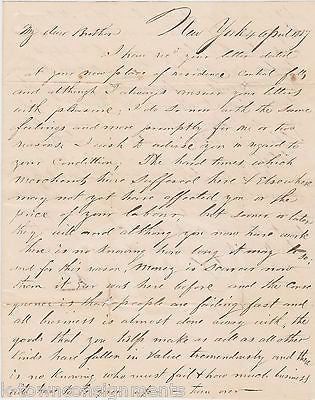 New York 4 April 1837
My dear Brother
I have recd your letter dated
at your new place of residence Central falls
and although I always answer your letters
with pleasure, I do so now with the same
feelings and more promptly for one or two
reasons. I wish to advise you in regard to
your Condition. The hard times which
merchants have suffered here & Elsewhere
may not yet have affected you or the
price of your labour, but sooner or later
they will and although you now have work
there is no knowing how long it may
and for this reason, Money is Scarcer now
than it ever was here before and the Conse
quence is that people are failing fast and
all business is almost done away with, the
goods that you help make as well as all other
kinds have fallen in Value tremendously and there
is no knowing who must fail & how much business
turn over
iotownconsignments